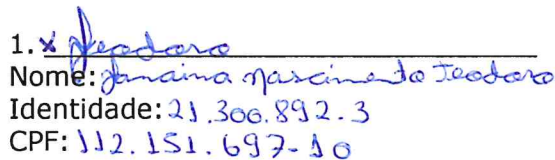 1. x Jteodoro
Nome: Janaina Nascimento Teodoro
Identidade: 21.300.892.3
CPF: 112.151.697-10